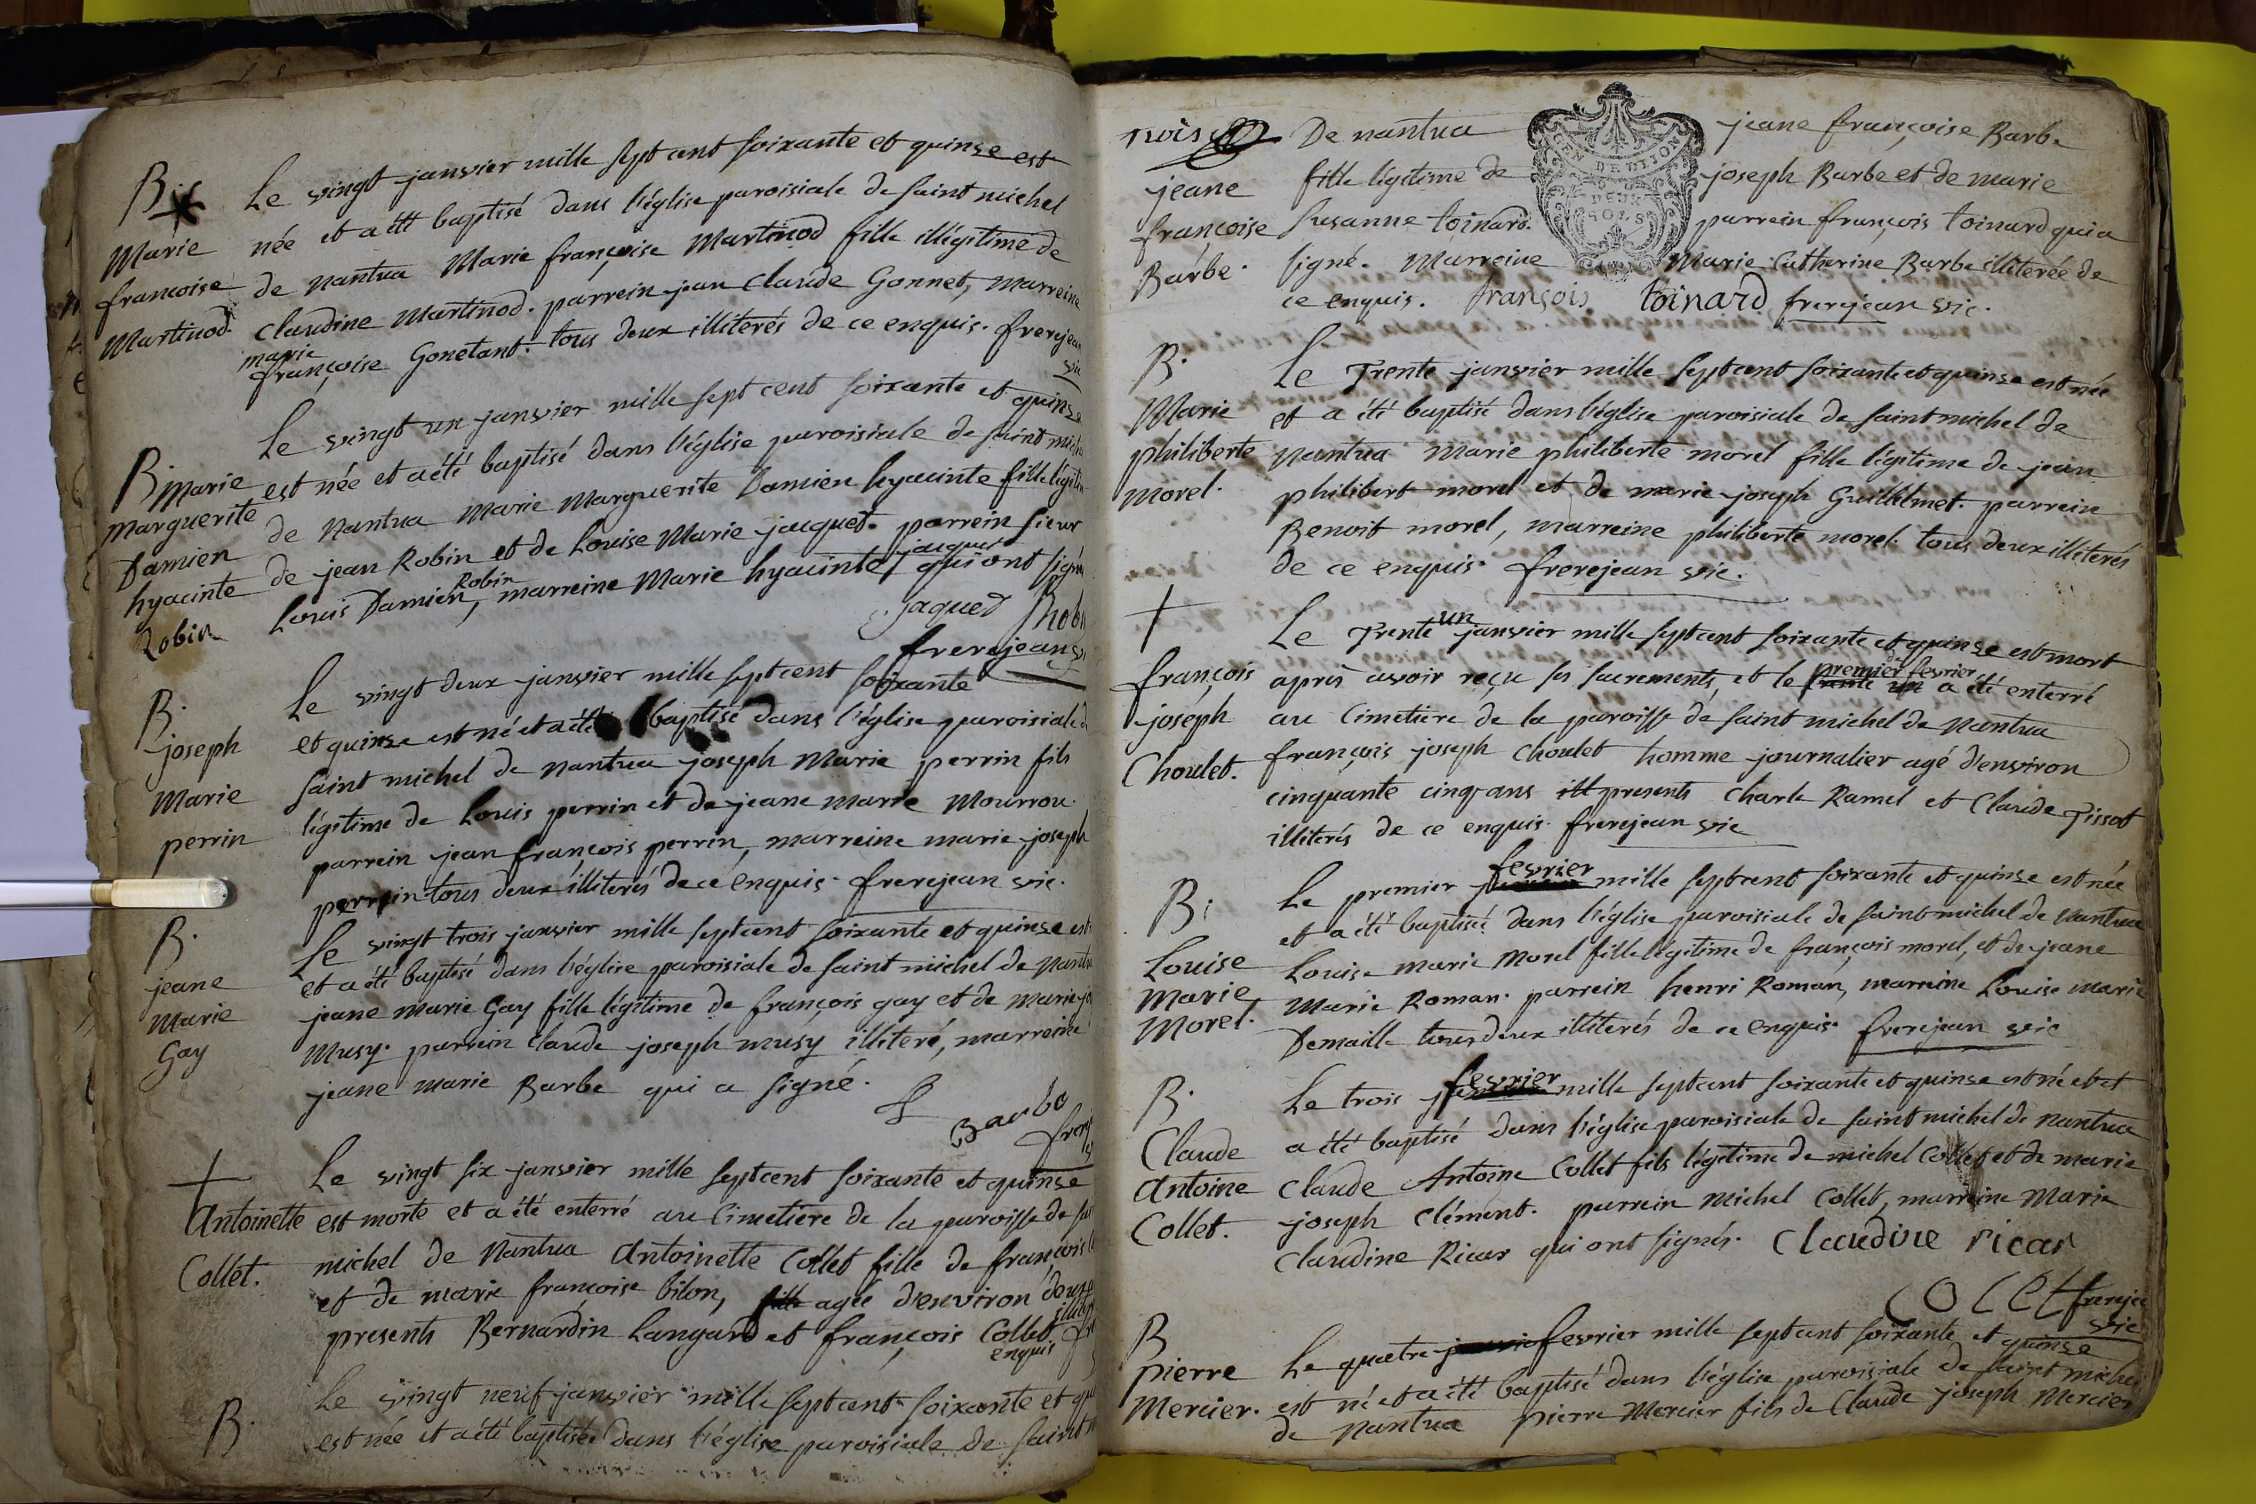 B.
Marie
francoise
Martinod.
Le vingt janvier mille sept cent soixante et quinse est
née et a été baptisé dans l'église paroisiale de saint michel
de nantua Marie françoise Martinod fille illégitime de
claudine Martinod. parrein jean claude Gonnet, marreine
marie
françoise Gonetant. tous deux illiterés de ce enquis. frerejean
vic
B. Marie
marguerite
Damien
hyacinte
Robin
Le vingt un janvier mille sept cent soixante et quinse
est née et a été baptisé dans l'église paroisiale de saint
de Nantua Marie Marguerite Damien hyacinte fille
de jean Robin et de Louise Marie jacquet. parrein sieur
Robin jacquet
Louis Damien, marreine Marie hyacinte qui ont signé
jaqued
frerejean
B.
joseph
Marie
perrin
Le vingt deux janvier mille septcent soixante
et quinse est né et a été baptisé dans l'église paroisiale
saint michel de nantua joseph Marie perrin fils
légitime de Louis perrin et de jeane Marie Mourrou.
parrein jean françois perrin, marreine marie joseph
perrein tous deux illiterés de ce enquis. frerejean vic.
B.
jeane
Marie
Gay
Le vingt trois janvier mille septcent soixante et quinse est
et a été baptisé dans l'église paroisiale de saint michel de
jeane Marie Gay fille légitime de françois gay et de
Musy. parrein claude joseph musy illiteré, marreine
jeane marie Barbe qui a signé.
Barbe
+
Antoinette
Collet.
Le vingt six janvier mille septcent soixante et quinse
est morte et a été enterré au cimetiere de la paroisse de
michel de Nantua Antoinette Collet fille de françois
et de marie françoise bilon, fille agée d'environ
presents Bernardin Langard et françois Collet
enquis
B.
Le vingt neuf janvier mille septcent soixante et
est née et a été baptisée dans l'église paroisiale de saint
rois
jeane
françoise
Barbe.
De nantua jeane françoise Barbe
fille légitime de joseph Barbe et de marie
susanne toinard. parrein françois toinard qui a
signé. Marreine Marie Catherine Barbe illiterée de
ce enquis. françois toinard frerejean vic.
GEN. DE DIJON
DEUX
SOLS
B.
Marie
philiberte
morel.
Le Trente janvier mille septcent soixante et quinse est née
et a été baptisé dans l'église paroisiale de saint michel de
nantua Marie philiberte morel fille légitime de jean
philibert morel et de marie joseph Guillelmet. parrein
Benoit morel, marreine philiberte morel. tous deux illiterés
de ce enquis. frerejean vic.
+
françois
joseph
Choulet.
un
Le Trente janvier mille septcent soixante et quinse est mort
premier fevrier
après avoir reçu ses sacrements, et le trente un a été enterré
au cimetiere de la paroisse de saint michel de Nantua
françois joseph Choulet homme journalier agé d'environ
cinquante cinq ans ill presents Charle Ramel et Claude Pissot
illiterés de ce enquis. frerejean vic
B.
Louise
Marie
Morel.
fevrier
Le premier mille septcent soixante et quinse est née
et a été baptisé dans l'église paroisiale de saint michel de nantua
Louise marie Morel fille légitime de françois morel, et de jeane
Marie Roman. parrein henri Roman, marreine Louise marie
Demaille tous deux illiterés de ce enquis. frerejean vic
B.
Claude
Antoine
Collet.
fevrier
Le trois mille septcent soixante et quinse est né et et
a été baptisé dans l'église paroisiale de saint michel de nantua
Claude Antoine Collet fils légitime de michel Collet et de marie
joseph Clément. parrein Michel Collet, marreine Marie
Claudine Ricar qui ont signés. Claudine ricar
Colet frerejean
vic
B
pierre
Mercier.
Le quatre fevrier mille septcent soixante et quinse
est né et a été baptisé dans l'église paroisiale de saint michel
de nantua pierre Mercier fils de Claude joseph Mercier